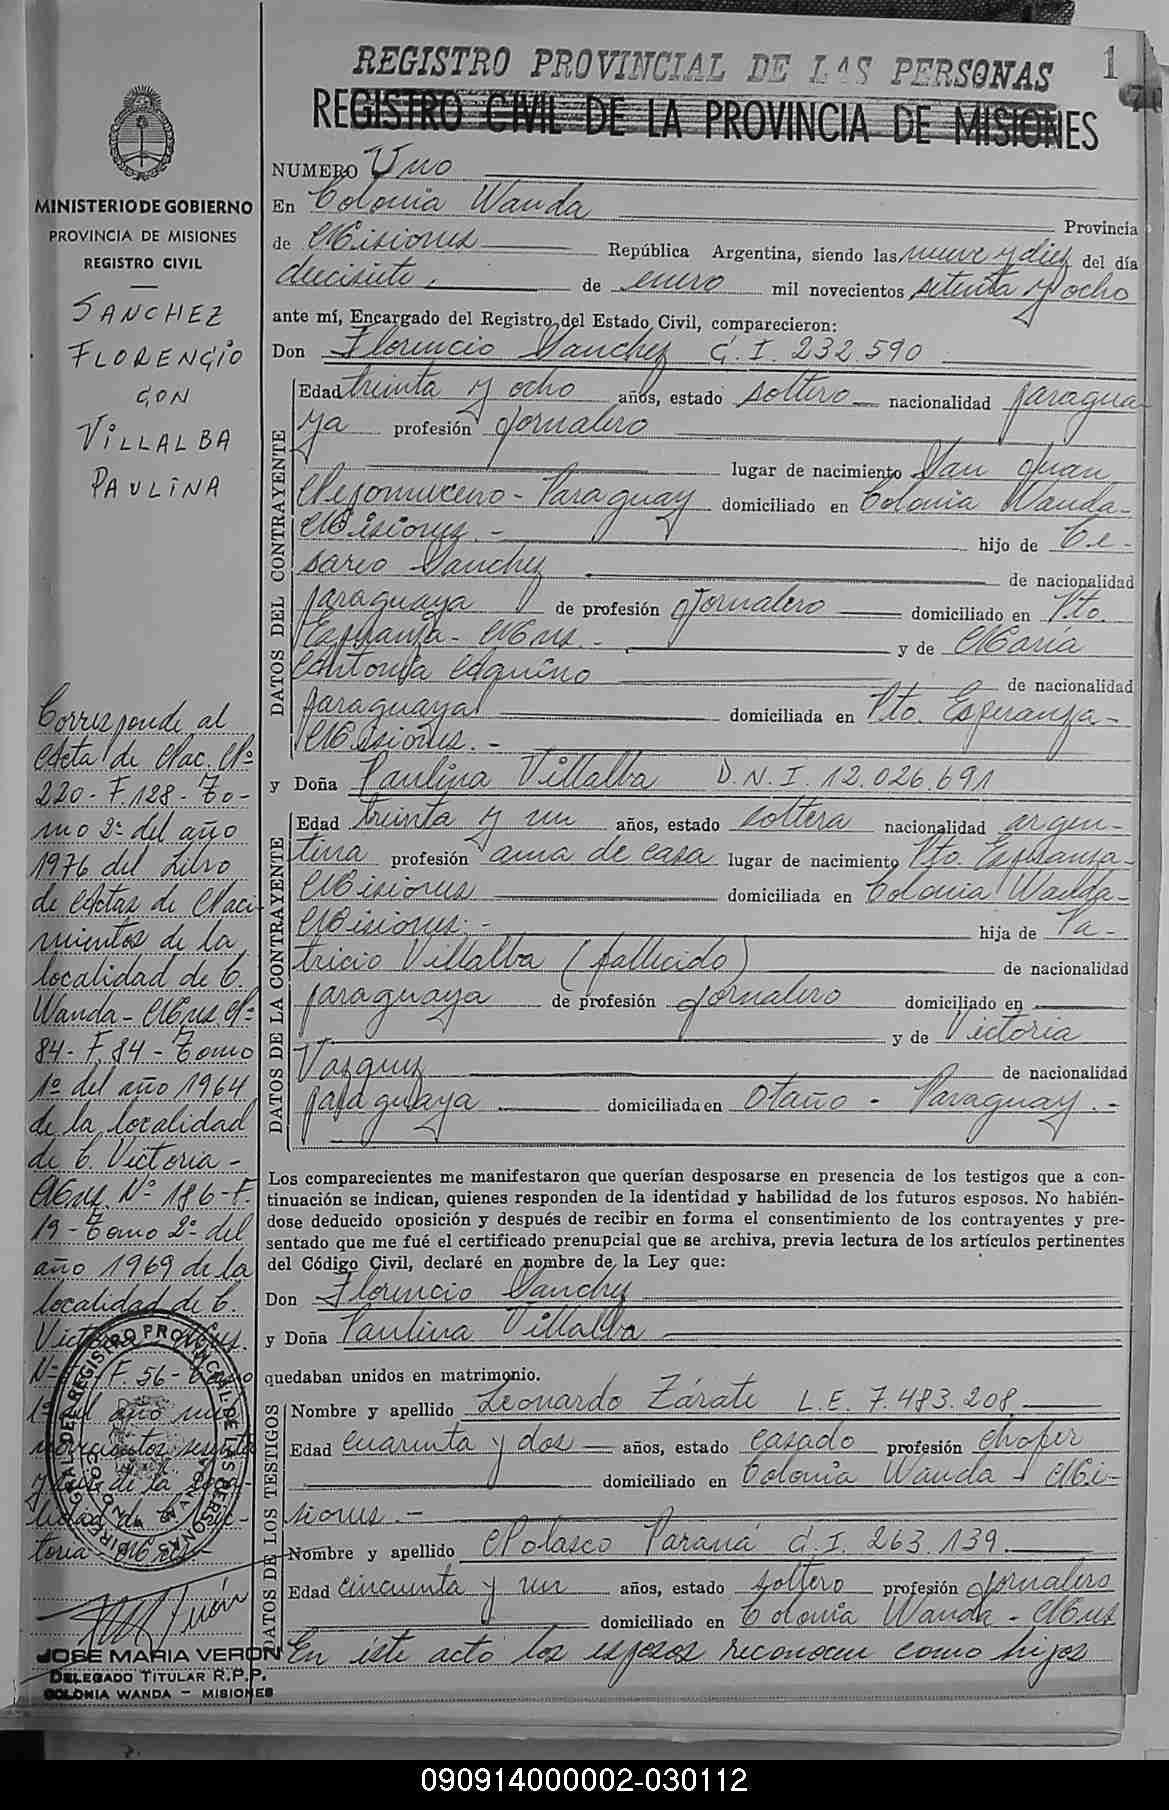 REGISTRO PROVINCIAL DE LAS PERSONAS
1
REGISTRO CIVIL DE LA PROVINCIA DE MISIONES
MINISTERIO DE GOBIERNO
PROVINCIA DE MISIONES
REGISTRO CIVIL
SANCHEZ
FLORENCIO
CON
VILLALBA
PAULINA
NUMERO Uno
En Colonia Wanda Provincia
de Misiones República Argentina, siendo las nueve y diez del día
diecisiete, de enero mil novecientos setenta y ocho
ante mí, Encargado del Registro del Estado Civil, comparecieron:
Don Florencio Sanchez C.I. 232.590
DATOS DEL CONTRAYENTE
Edad treinta y ocho años, estado soltero nacionalidad paragua-
ya profesión Jornalero
lugar de nacimiento San Juan
Nepomuceno - Paraguay domiciliado en Colonia Wanda-
Misiones.- hijo de Ce-
sareo Sanchez de nacionalidad
paraguaya de profesión Jornalero domiciliado en Pto.
Esperanza - Mnes.- y de María
Antonia Aquino de nacionalidad
paraguaya domiciliada en Pto. Esperanza-
Misiones.-
y Doña Paulina Villalba D.N.I. 12.026.691
DATOS DE LA CONTRAYENTE
Edad treinta y un años, estado soltera nacionalidad argen-
tina profesión ama de casa lugar de nacimiento Pto. Esperanza-
Misiones domiciliada en Colonia Wanda-
Misiones.- hija de Pa-
tricio Villalba (fallecido) de nacionalidad
paraguaya de profesión jornalero domiciliado en
y de Victoria
Vazquez de nacionalidad
paraguaya domiciliada en Otaño - Paraguay.-
Los comparecientes me manifestaron que querían desposarse en presencia de los testigos que a con-
tinuación se indican, quienes responden de la identidad y habilidad de los futuros esposos. No habién-
dose deducido oposición y después de recibir en forma el consentimiento de los contrayentes y pre-
sentado que me fué el certificado prenupcial que se archiva, previa lectura de los artículos pertinentes
del Código Civil, declaré en nombre de la Ley que:
Don Florencio Sanchez
y Doña Paulina Villalba
quedaban unidos en matrimonio.
DATOS DE LOS TESTIGOS
Nombre y apellido Leonardo Zárate L.E. 7.483.208
Edad cuarenta y dos años, estado casado profesión chofer
domiciliado en Colonia Wanda - Mi-
siones.-
Nombre y apellido Polasco Paraná C.I. 263.139
Edad cincuenta y un años, estado soltero profesión Jornalero
domiciliado en Colonia Wanda - Mnes
En este acto los esposos reconocen como hijos
Corresponde al
Acta de Nac. Nº
220 - F.128 - To-
mo 2º del año
1976 del Libro
de Actas de Naci-
mientos de la
localidad de C.
Wanda - Mnes. Nº
84 - F. 84 - Tomo
1º del año 1964
de la localidad
de C. Victoria -
Mnes. Nº 186 - F.
19 - Tomo 2º del
año 1969 de la
localidad de C.
Victoria Mnes.
Nº F. 56 - Tomo
1º del año mil
novecientos sesenta
de la
toria Mnes.-
DIREC. GRAL. DEL REGISTRO PROVINCIAL DE LAS PERSONAS
JOSE MARIA VERON
DELEGADO TITULAR R.P.P.
COLONIA WANDA - MISIONES
090914000002-030112